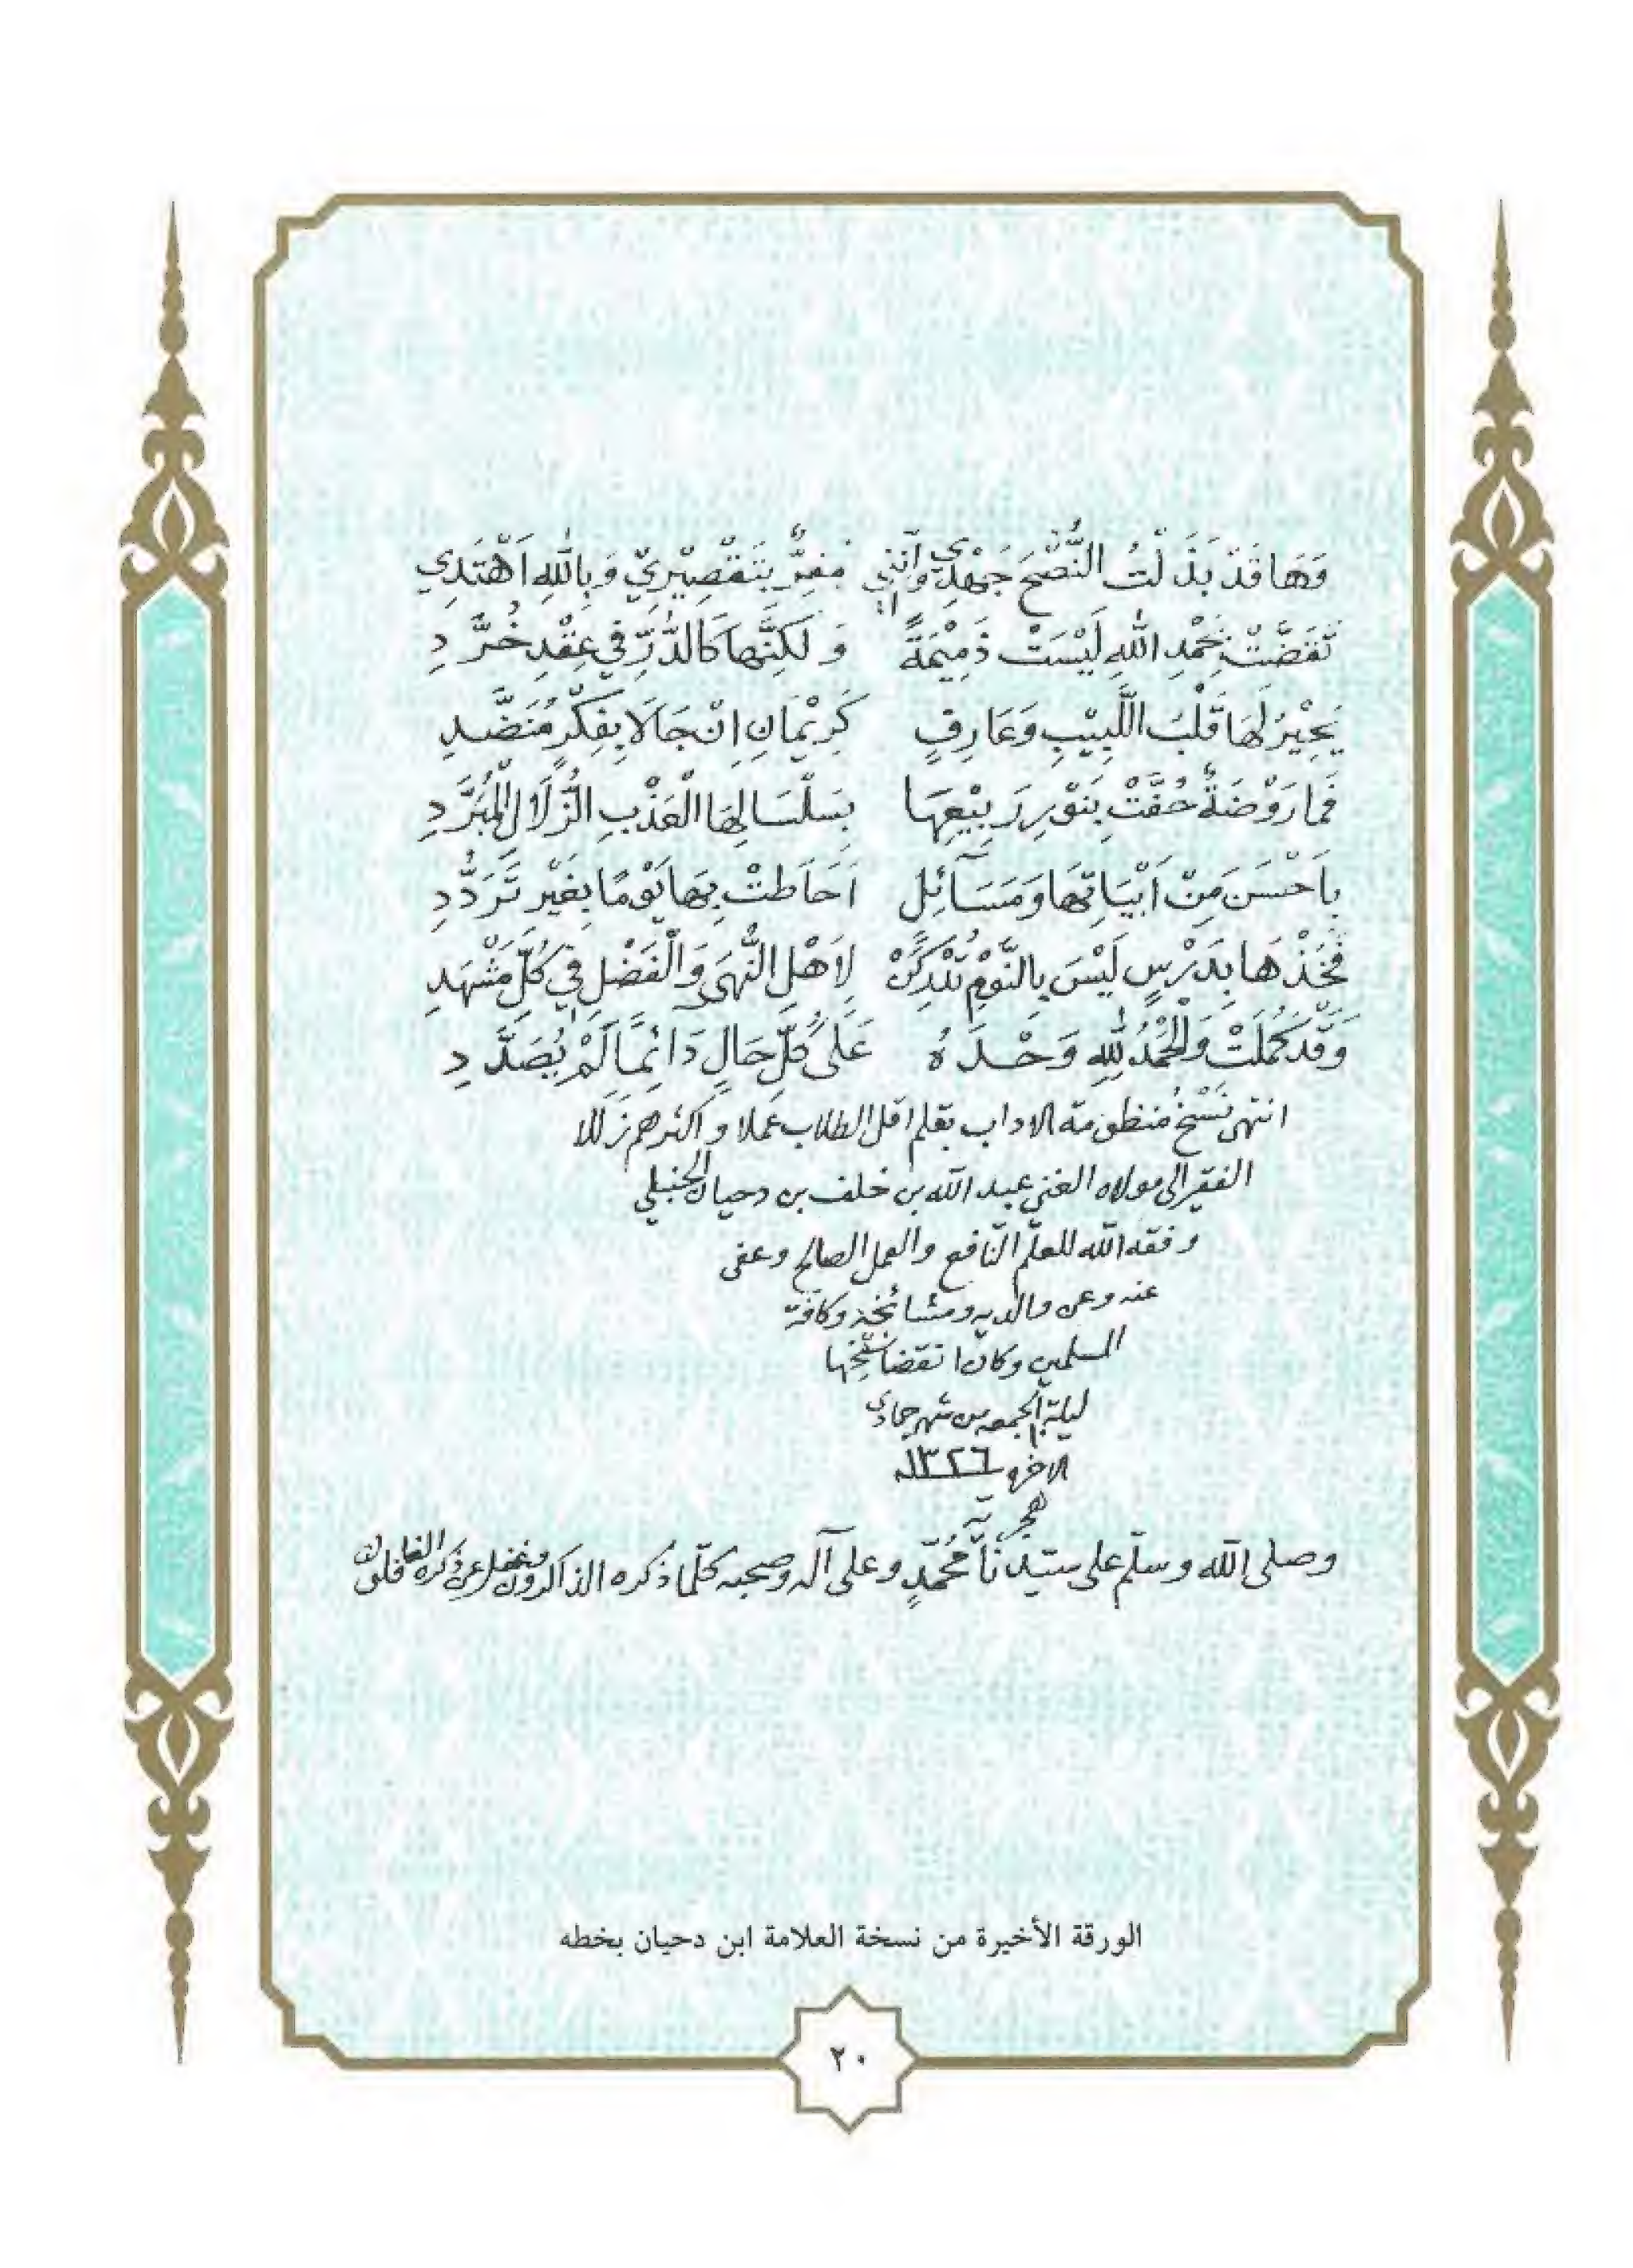 وَهَا قَدْ بَذَلْتُ النُّصْحَ جَهْدِي وَإِنَّنِي مُقِرٌّ بِتَقْصِيْرِيْ وَبِاللهِ اَهْتَدِي
تَقَضَّتْ بِحَمْدِ اللهِ لَيْسَتْ ذَمِيْمَةً وَلَكِنَّهَا كَالدُّرِّ فِي عِقْدِ خُرَّدِ
يَحِيْرُ لَهَا قَلْبُ اللَّبِيْبِ وَعَارِفٍ كَرِيْمَانِ اِنْ جَالَا بِفِكْرٍ مُنَضَّدِ
فَمَا رَوْضَةٌ حُفَّتْ بِنَوْرِ رَبِيْعِهَا بِسَلْسَالِهَا الْعَذْبِ الزُّلَالِ الْمُبَرَّدِ
بِاَحْسَنَ مِنْ اَبْيَاتِهَا وَمَسَآئِلٍ اَحَاطَتْ بِهَا يَوْمًا بِغَيْرِ تَرَدُّدِ
فَخُذْهَا بِدَرْسٍ لَيْسَ بِالنَّوْمِ تُدْرِكَنْ لِاَهْلِ النُّهَى وَالْفَضْلِ فِي كُلِّ مَشْهَدِ
وَقَدْ كَمُلَتْ وَالْحَمْدُ لِلهِ وَحْدَهُ عَلَى كُلِّ حَالٍ دَائِمًا لَمْ يُصَدَّدِ
انتهى نَسْخُ مُنظومة الاداب بقلم اقل الطلاب عَمَلا و اكثرهم زَلَلا
الفقير الى مولاه الغني عبد الله بن خلف بن دحيان الحنبلي
وفقه الله للعلم النّافع والعمل الصالح وعفى
عنه وعن والديه ومشائخه وكافة
المسلمين وكان انقضا نسخها
ليلة الجمعه من شهر جمادي
الاخره ١٣٢٦
هجريه
وصلى الله وسلّم على سيّدنا مُحمّدٍ وعلى آله وصحبه كلّما ذكره الذاكرون وغفل عن ذكره الغافلون
الورقة الأخيرة من نسخة العلامة ابن دحيان بخطه
٢٠